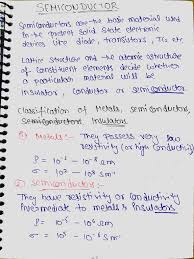 SEMICONDUCTOR
Semiconductors are the basic material used
in the present solid state electronic
devices like diode, transistors, ICs etc
Lattice structure and the atomic structure
of constituent elements decide whether
a particular material will be
insulators, conductor or semiconductor.
Classification of Metals, semiconductors,
Semiconductors Insulators
1) Metals:- They possess very low
resistivity (or high conductivity)
ρ = 10⁻² - 10⁻⁸ Ωm
σ = 10² - 10⁸ Sm⁻¹
2) Semiconductors:-
They have resistivity or conductivity
intermediate to metals & insulators
ρ = 10⁻⁵ - 10⁶ Ωm
σ = 10⁵ - 10⁻⁶ Sm⁻¹